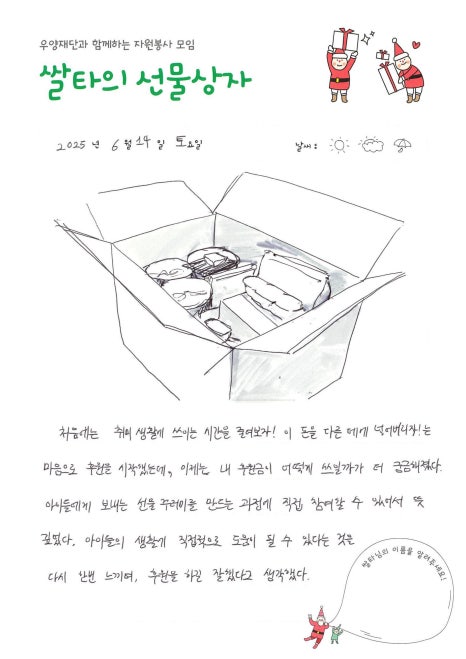 우양재단과 함께하는 자원봉사 모임
쌀타의 선물상자
2025 년 6 월 14 일 토요일
날씨 :
처음에는 취미 생활에 쓰이는 시간을 줄여보자! 이 돈을 다른 데에 넣어버리자!는
마음으로 후원을 시작했는데, 이제는 내 후원금이 어떻게 쓰일까가 더 궁금해졌다.
아이들에게 보내는 선물 꾸러미를 만드는 과정에 직접 참여할 수 있어서 뜻
깊었다. 아이들의 생활에 직접적으로 도움이 될 수 있다는 것은
다시 한번 느끼며, 후원을 하길 잘했다고 생각했다.
쌀타님의 이름을 알려주세요!